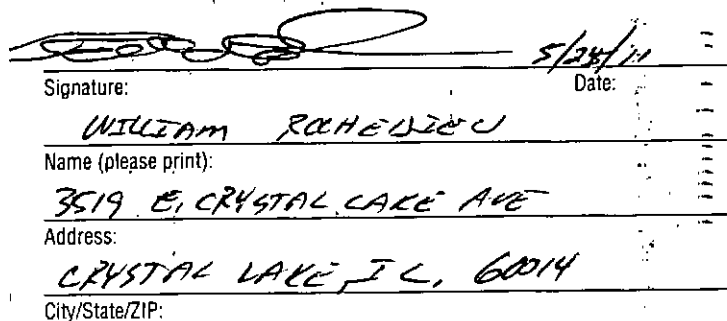 5/28/11
Signature: Date:
WILLIAM ROCHEDIEU
Name (please print):
3519 E, CRYSTAL LAKE AVE
Address:
CRYSTAL LAKE, IL, 60014
City/State/ZIP: